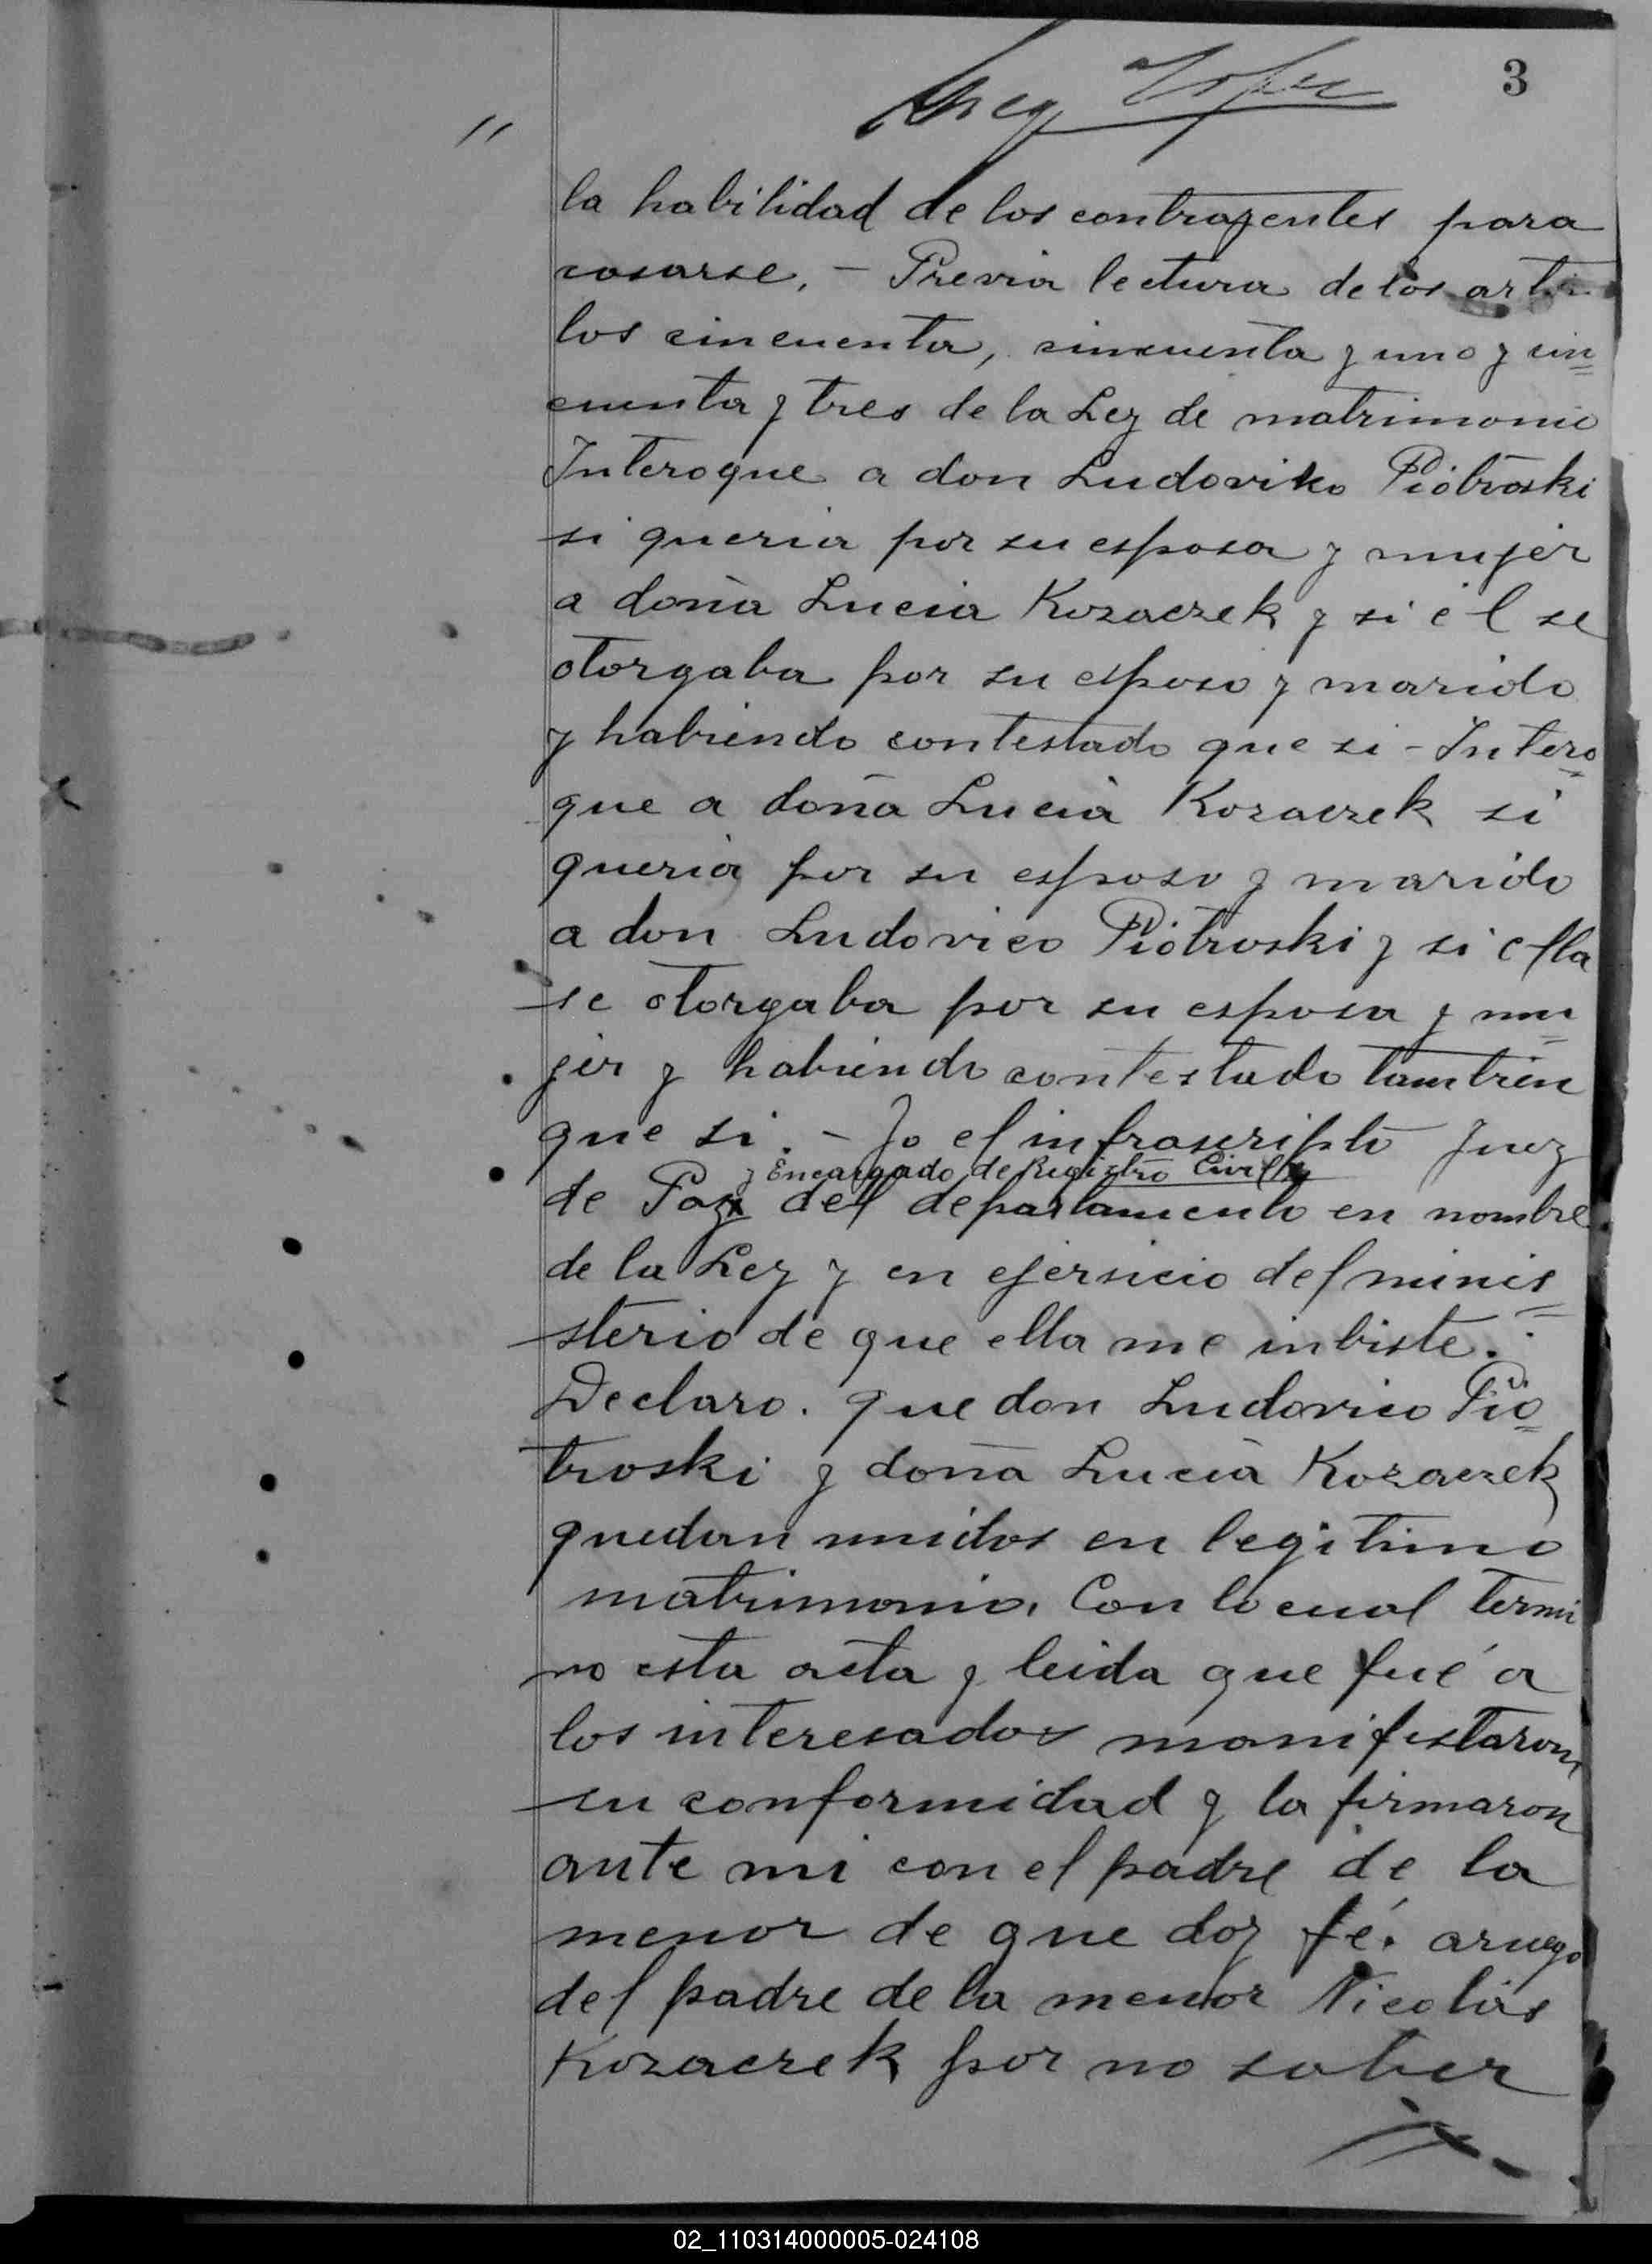 3
"
la habilidad de los contrayentes para
casarse. - Previa lectura de los artí
los cincuenta, cincuenta y uno y cin=
cuenta y tres de la Ley de matrimonio
Interoque a don Ludoviko Piotroski
si queria por su esposa y mujer
a doña Lucia Kozaczek y si él se
otorgaba por su esposo y marido
y habiendo contestado que si - Intero=
que a doña Lucia Kozaczek si
queria por su esposo y marido
a don Ludovico Piotroski y si ella
se otorgaba por su esposa y mu=
jer y habiendo contestado tambien
que si. - Yo el infrascripto Juez
y Encargado de Registro Civil
de Paz del departamento en nombre
de la Ley y en ejersicio del minis=
sterio de que ella me inbiste. :
Declaro. que don Ludovico Pio=
troski y doña Lucia Kozaczek
quedan unidos en legitimo
matrimonio. Con lo cual termi
no esta acta y leida que fué a
los interesados manifestaron
su conformidad y la firmaron
ante mi con el padre de la
menor de que doy fé. aruego
del padre de la menor Nicolás
Kozaczek por no saber
02_110314000005-024108